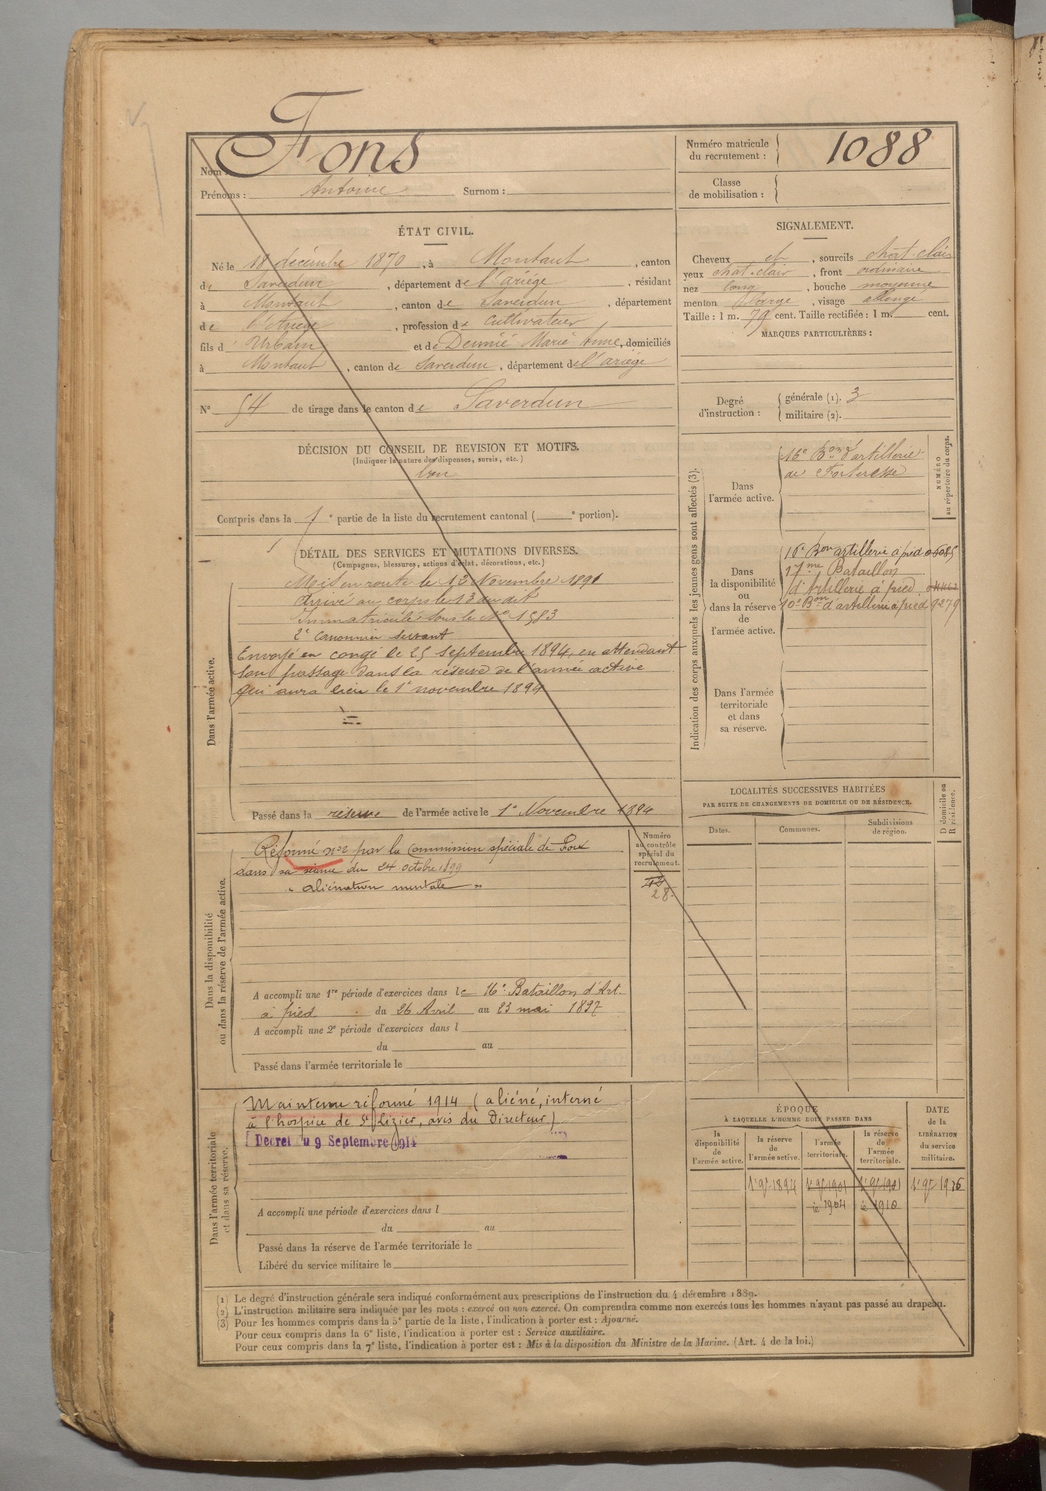 Nom : Fons
Prénoms : Antoine Surnom :
Numéro matricule
du recrutement : 1088
Classe
de mobilisation :
ÉTAT CIVIL.
Né le 18 décembre 1870, à Montaut, canton
de Saverdun, département de l'ariège, résidant
à Montaut, canton de Saverdun, département
de l'Ariège, profession de cultivateur
fils d' Urbain et de Marie Anne, domiciliés
à Montaut, canton de Saverdun, département de l'ariège
N° 54 de tirage dans le canton de Saverdun
SIGNALEMENT.
Cheveux et, sourcils chat-clair
yeux chat-clair, front ordinaire
nez long, bouche moyenne
menton large, visage allongé
Taille : 1 m. 79 cent. Taille rectifiée : 1 m. cent.
MARQUES PARTICULIÈRES :
Degré
d'instruction :
générale (1). 3
militaire (2).
DÉCISION DU CONSEIL DE REVISION ET MOTIFS.
(Indiquer la nature des dispenses, sursis, etc.)
bon
Compris dans la 1e partie de la liste du recrutement cantonal ( e portion).
DÉTAIL DES SERVICES ET MUTATIONS DIVERSES.
(Campagnes, blessures, actions d'éclat, décorations, etc.)
Dans l'armée active.
Mis en route le 12 Novembre 1891
Arrivé au corps le 13 au dit
Immatriculé sous le No 1583
2e Canonnier servant
Envoyé en congé le 25 septembre 1894, en attendant
son passage dans la réserve de l'armée active
qui aura lieu le 1er novembre 1894
Passé dans la réserve de l'armée active le 1er Novembre 1894
Indication des corps auxquels les jeunes gens sont affectés (3).
NUMÉRO
au répertoire du corps.
Dans
l'armée active.
16e Bon d'artillerie
de Forteresse
Dans
la disponibilité
ou
dans la réserve
de
l'armée active.
16e Bon artillerie à pied
17me Bataillon
d'Artillerie à pied
10e Bon d'artillerie à pied 9279
Dans l'armée
territoriale
et dans
sa réserve.
LOCALITÉS SUCCESSIVES HABITÉES
PAR SUITE DE CHANGEMENTS DE DOMICILE OU DE RÉSIDENCE.
Dates.
Communes.
Subdivisions
de région.
D domicile ou
R résidence.
Dans la disponibilité
ou dans la réserve de l'armée active.
Réformé n°2 par la Commission spéciale de Foix
dans sa séance du 24 octobre 1899
" aliénation mentale "
Numéro
au contrôle
spécial du
recrutement.
28.
A accompli une 1re période d'exercices dans le 16e Bataillon d'Art.
à pied du 26 Avril au 23 mai 1897
A accompli une 2e période d'exercices dans l
du au
Passé dans l'armée territoriale le
Dans l'armée territoriale
et dans sa réserve.
Maintenu réformé 1914 (aliéné, interné
à l'hospice de St Lizier, avis du Directeur)
Décret du 9 Septembre 1914
A accompli une période d'exercices dans l
du au
Passé dans la réserve de l'armée territoriale le
Libéré du service militaire le
ÉPOQUE
À LAQUELLE L'HOMME DOIT PASSER DANS
la
disponibilité
de
l'armée active.
la réserve
de
l'armée active.
l'armée
territoriale.
la réserve
de
l'armée
territoriale.
DATE
de la
LIBÉRATION
du service
militaire.
1er 9bre 1894
1904
1910
1916
(1) Le degré d'instruction générale sera indiqué conformément aux prescriptions de l'instruction du 4 décembre 1889.
(2) L'instruction militaire sera indiquée par les mots : exercé ou non exercé. On comprendra comme non exercés tous les hommes n'ayant pas passé au drapeau.
(3) Pour les hommes compris dans la 5e partie de la liste, l'indication à porter est : Ajourné.
Pour ceux compris dans la 6e liste, l'indication à porter est : Service auxiliaire.
Pour ceux compris dans la 7e liste, l'indication à porter est : Mis à la disposition du Ministre de la Marine. (Art. 4 de la loi.)